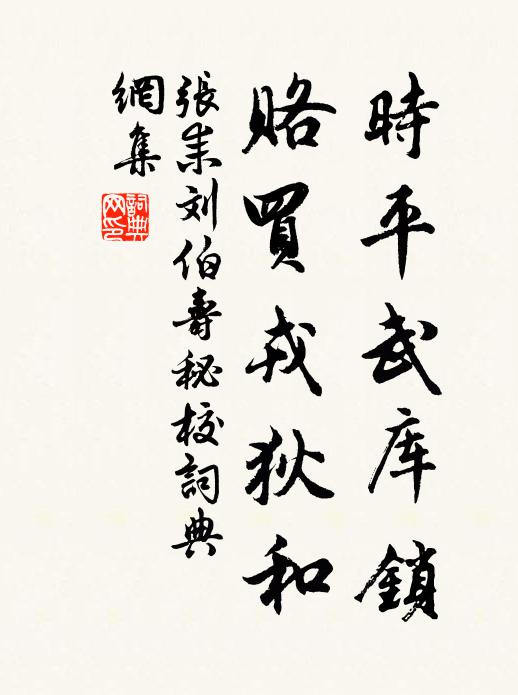 時平武库鎖
賂買戎狄和
張耒刘伯壽秘校詞典
網集
詞典
网印